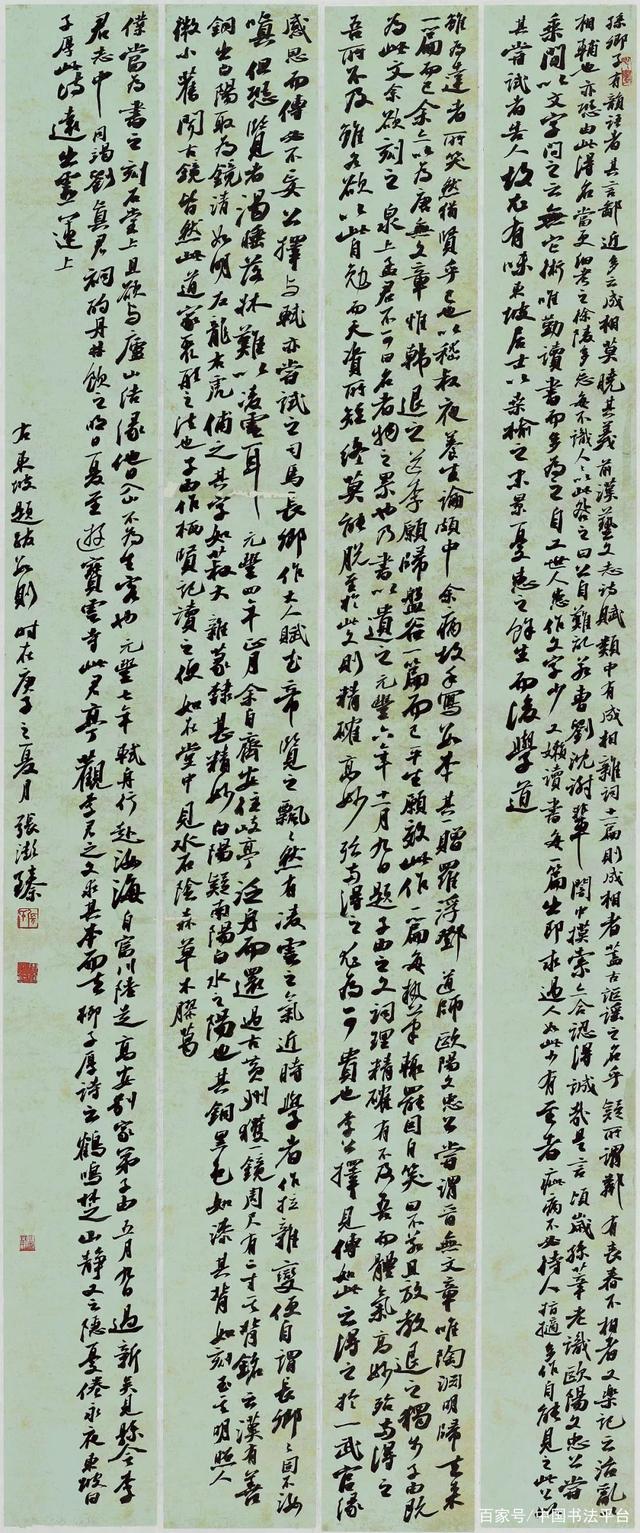 孫卿子有韻語者其言鄙近多云成相莫曉其義前漢藝文志詩賦類中有成相雜詞十一篇則成相者蓋古謳謠之名乎疑所謂鄰有喪舂不相者又樂記云治亂
相輔也亦恐由此得名當更細考之徐陵多忘每不識人人以此咎之曰公自難記若曹劉沈謝輩闇中摸索亦合認得誠哉是言頃歲孫莘老識歐陽文忠公嘗
乘間以文字問之云無它術唯勤讀書而多為之自工世人患作文字少又嬾讀書每一篇出即求過人如此少有至者疵病不必待人指擿多作自能見之此公以
其嘗試者告人故尤有味東坡居士以桑榆之末景憂患之餘生而後學道
雖為達者所笑然猶賢乎已也以嵇叔夜養生論頗中余病故手寫數本其一贈羅浮鄧道師歐陽文忠公嘗謂晉無文章唯陶淵明歸去來
一篇而已余亦以為唐無文章惟韓退之送李願歸盤谷一篇而已平生願效此作一篇每執筆輒罷因自笑曰不若且放教退之獨步子由既
為此文余欲刻之泉上孟君不可曰名者物之累也乃書以遺之元豐六年十一月九日題子由之文詞理精確有不及吾而體氣高妙殆吾得之
吾所不及雖各欲以此自勉而天資所短終莫能脫至於此文則精確高妙殆兩得之尤為可貴也李公擇見傳如此云得之於一武官緣
感恩而傳必不妄公擇與軾亦嘗試之司馬長卿作大人賦武帝覽之飄飄然有凌雲之氣近時學者作拉雜變便自謂長卿長卿固不汝
嗔但恐覽者渴睡落牀難以凌雲耳元豐四年正月余自齊安往岐亭泛舟而還過古黃州獲鏡周尺有二寸其背銘云漢有善
銅出白陽取為鏡清如明左龍右虎俌之其字如菽大雜篆隸甚精妙白陽疑南陽白水之陽也其銅黑色如漆其背如刻玉其明照人
微小舊聞古鏡皆然此道家聚形之法也子由作栖賢記讀之便如在堂中見水石陰森草木膠葛
僕當為書之刻石堂上且欲與廬山結緣他日入山不為生客也元豐七年軾舟行赴汝海自富川陸走高安別家弟子由五月九日過新吳見縣令李
君志中同謁劉真君祠酌丹井飲之明日夏至遊寶雲寺此君亭觀李君之文求其本而去柳子厚詩云鶴鳴楚山靜又云隱憂倦永夜東坡曰
子厚此詩遠出靈運上
右東坡題跋數則時在庚子之夏月張漱臻
百家号/中国书法平台